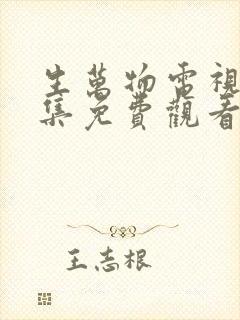 生萬物電視
集免費觀看
王志根